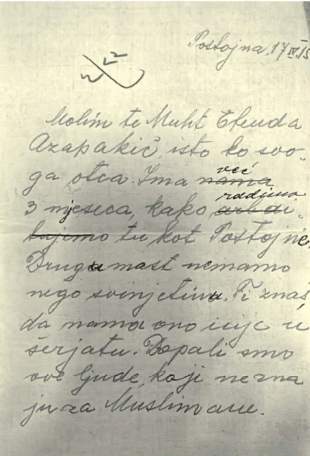 Postojna, 17 IV 15
Molim te Muht Efenda
Azapakić isto ko svo-
ga otca. Ima nama već
3 mjeseca, kako radimo
tu, kot Postojne.
Drugu mast nemamo
nego svinjetinu. Ti znaš,
da nama ono nije u
šerjatu. Dopali smo
ove ljude, koji ne zna
ju za Muslimane.